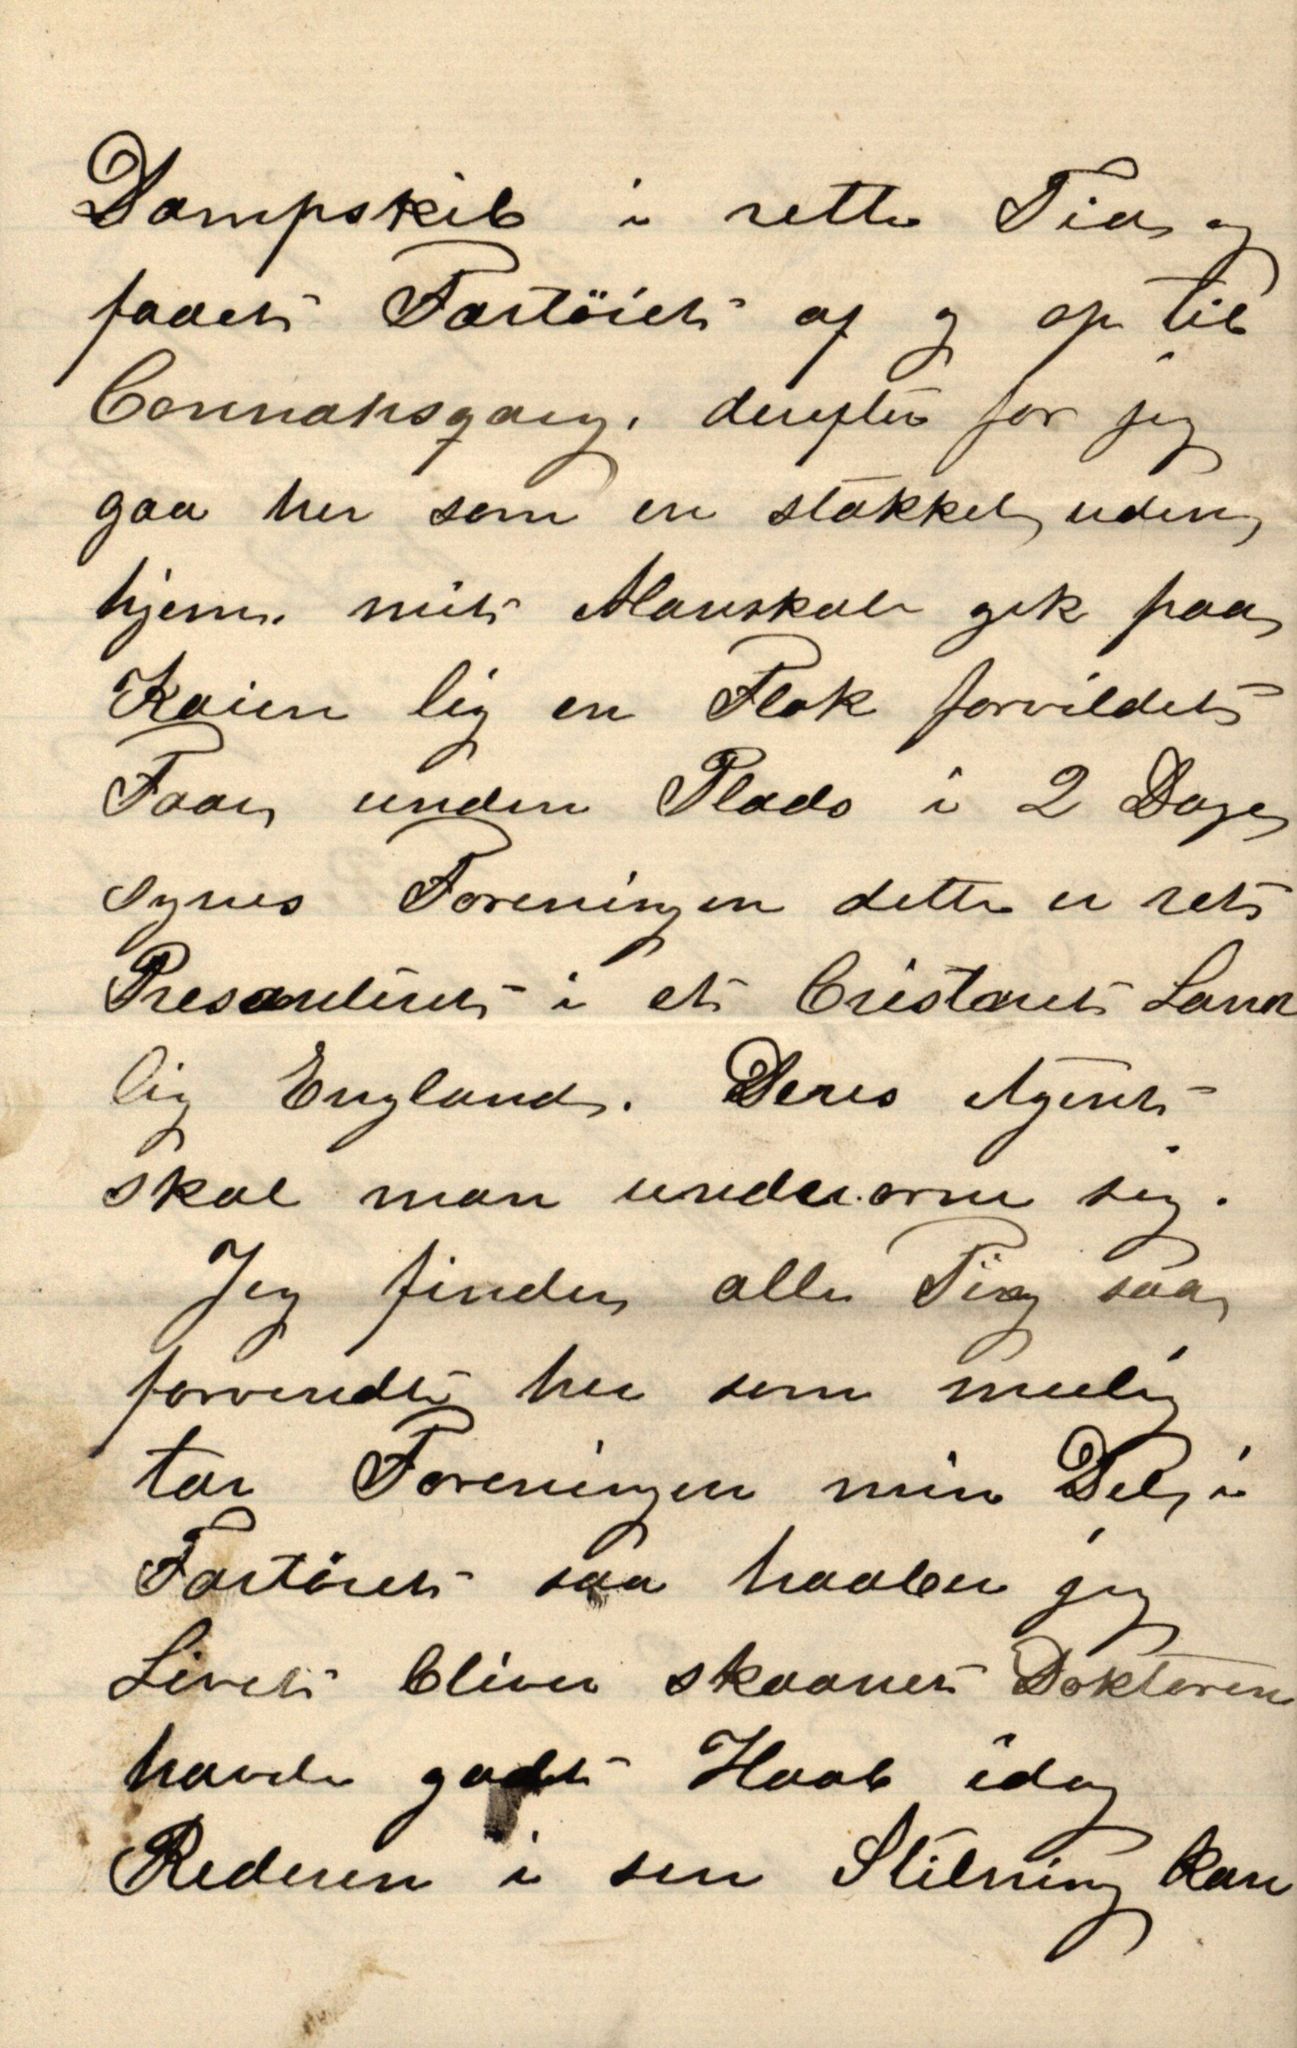 Dampskib i rette Tid og
faaet Fartöiet af og op til
Connahsqauy, derefter før jeg
gaa her som en stakkel uden
hjem. mit Manskab gik paa
Kaien lig en Flok forvildet
Faar uden Plads i 2 Dage
synes Foreningen dette er ret
Presenteret i et Cristent Land
lig England. Deres Agent
skal man underorne sig.
Jeg finder alle Ting saa
forvendt her som mulig
tar Foreningen min Del i
Fartöiet saa haaber jeg
Livet bliver skaanet Doktoren
havde godt Haab idag
Rederen i sen Stilning kan